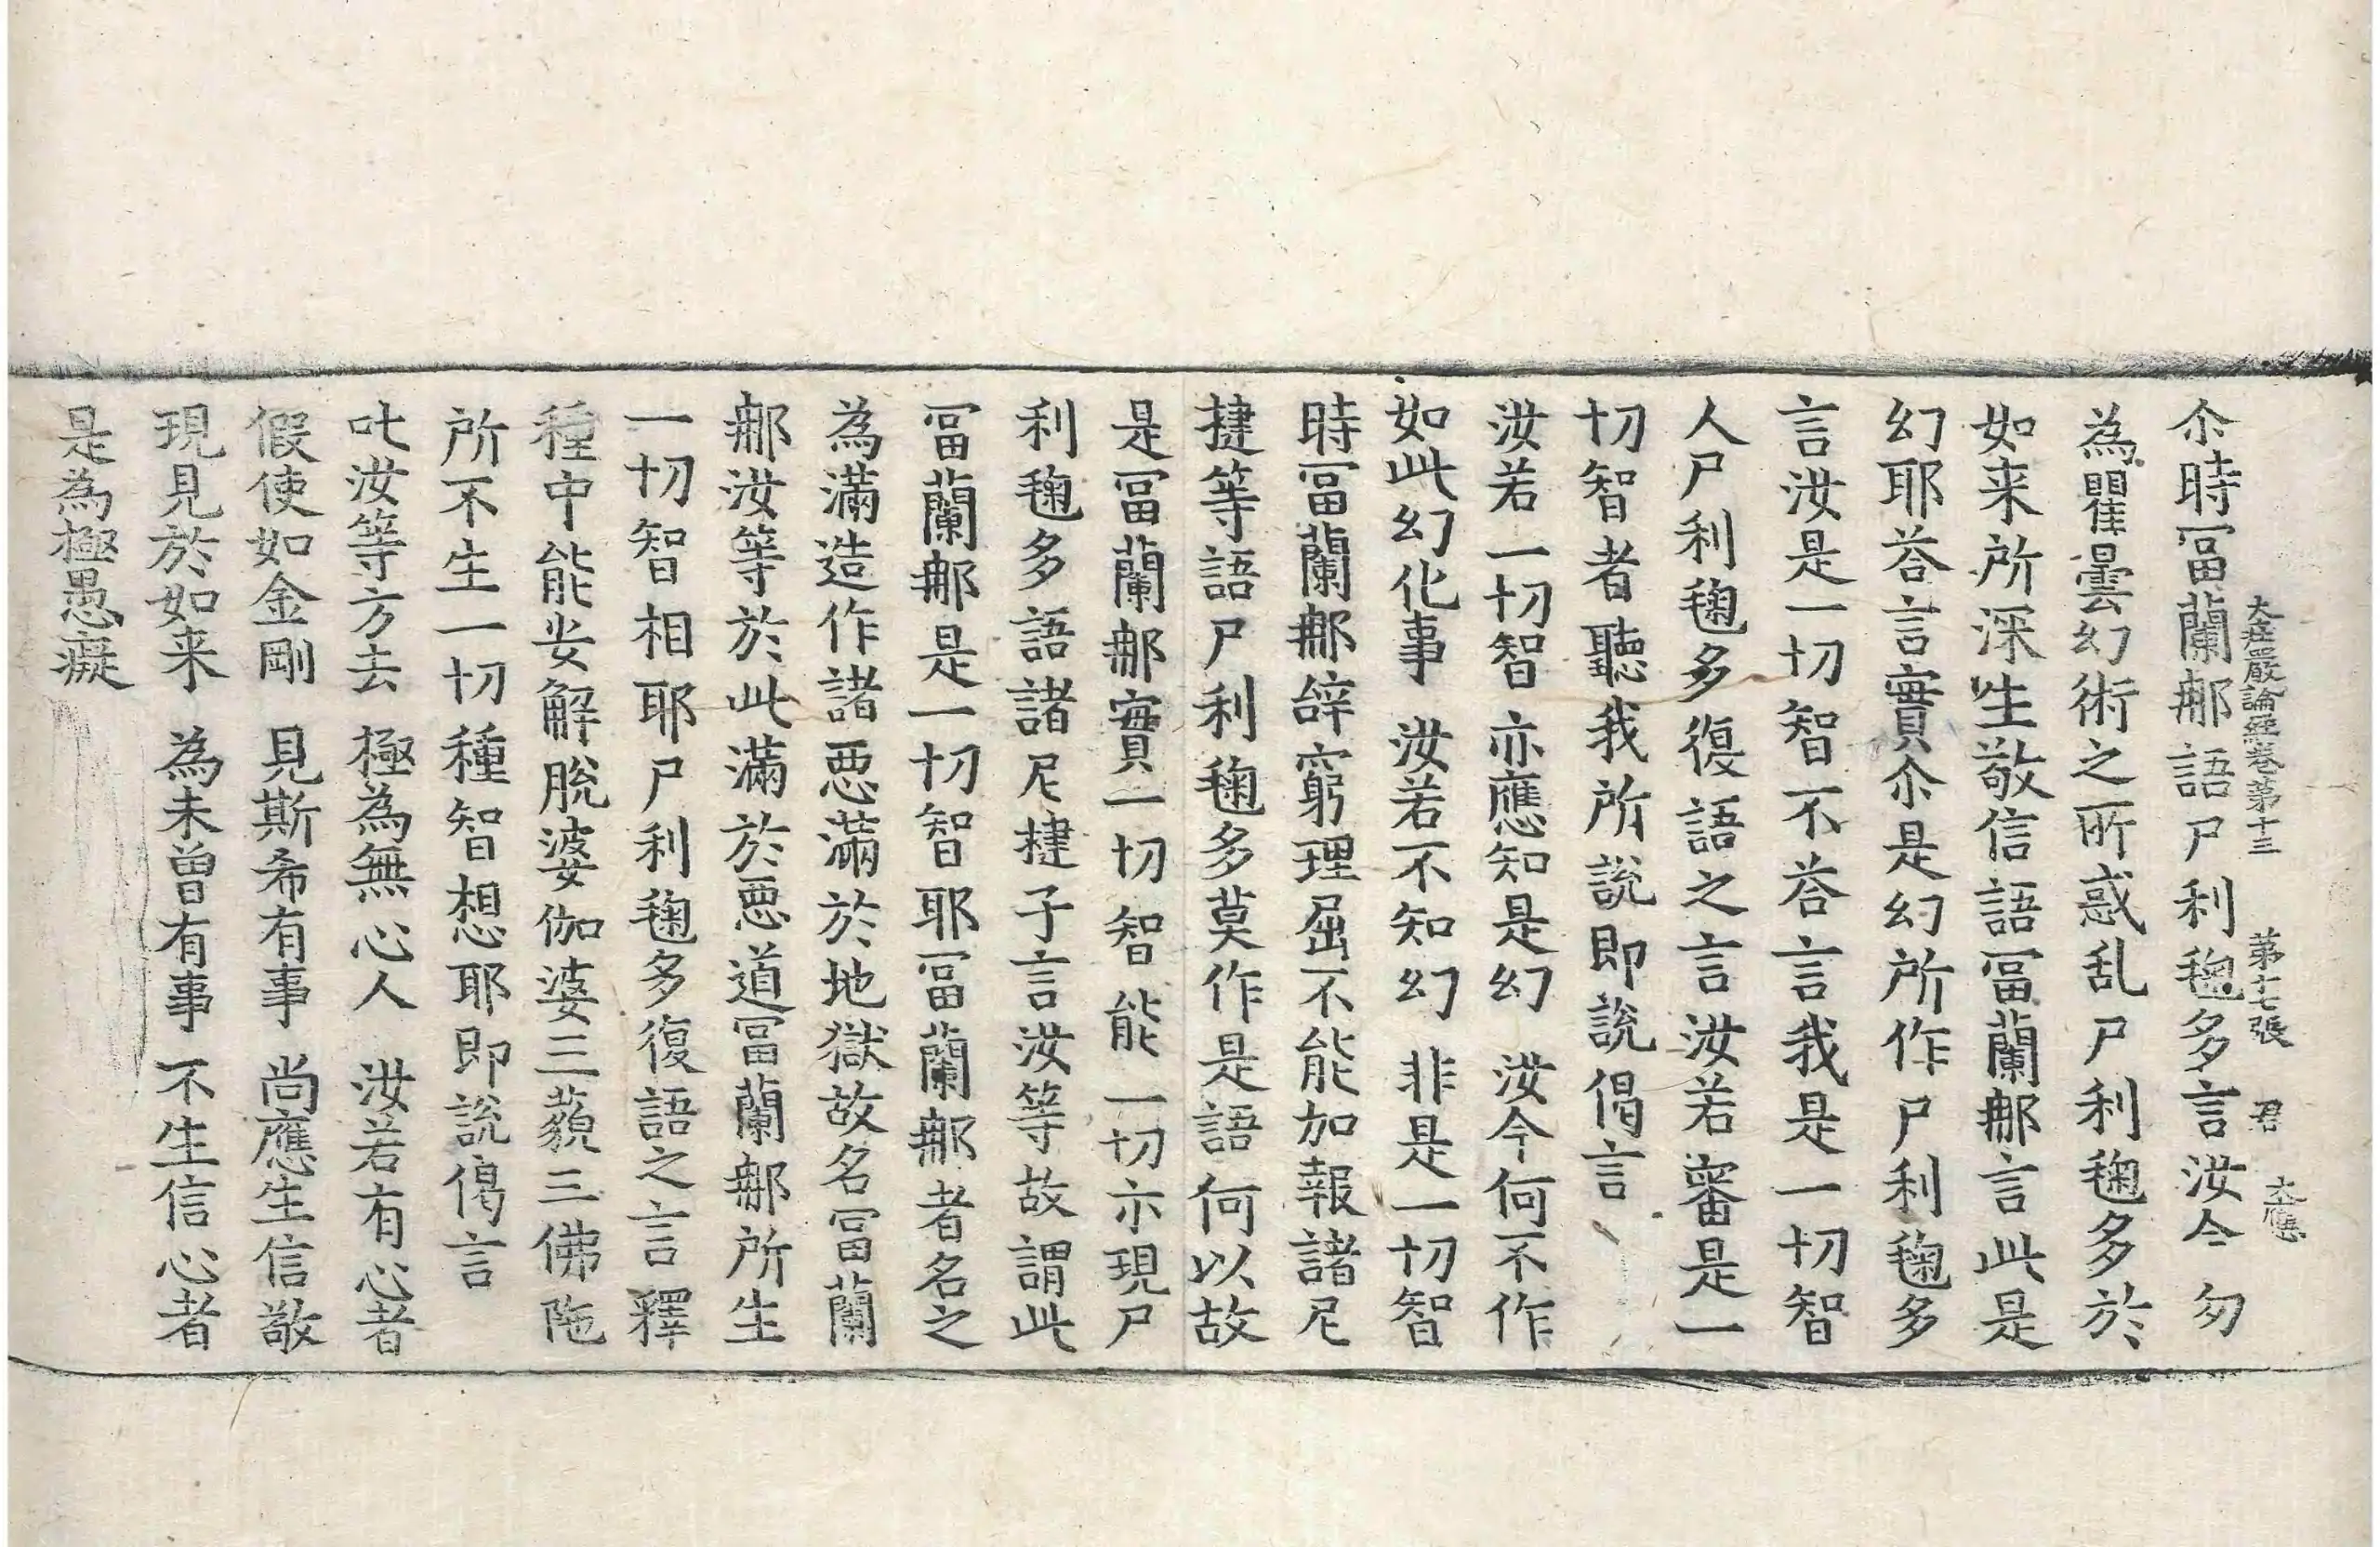 大莊嚴論經卷第十三　第十七張　君　大應
尒時冨蘭那語尸利毱多言汝今勿
為瞿曇幻術之所惑乱尸利毱多於
如来所深生敬信語冨蘭那言此是
幻耶荅言實尒是幻所作尸利毱多
言汝是一切智不荅言我是一切智
人尸利毱多復語之言汝若審是一
切智者聽我所說即說偈言
汝若一切智　亦應知是幻　汝今何不作
如此幻化事　汝若不知幻　非是一切智
時冨蘭那辝窮理屈不能加報諸尼
揵等語尸利毱多莫作是語何以故
是冨蘭那實一切智能一切示現尸
利毱多語諸尼揵子言汝等故謂此
冨蘭那是一切智耶冨蘭那者名之
為滿造作諸惡滿於地獄故名冨蘭
那汝等於此滿於惡道冨蘭那所生
一切智相耶尸利毱多復語之言釋
種中能安解脫婆伽婆三藐三佛陁
所不生一切種智想耶即說偈言
叱汝等方去　極為無心人　汝若有心者
假使如金剛　見斯希有事　尚應生信敬
現見於如来　為未曾有事　不生信心者
是為極愚癡